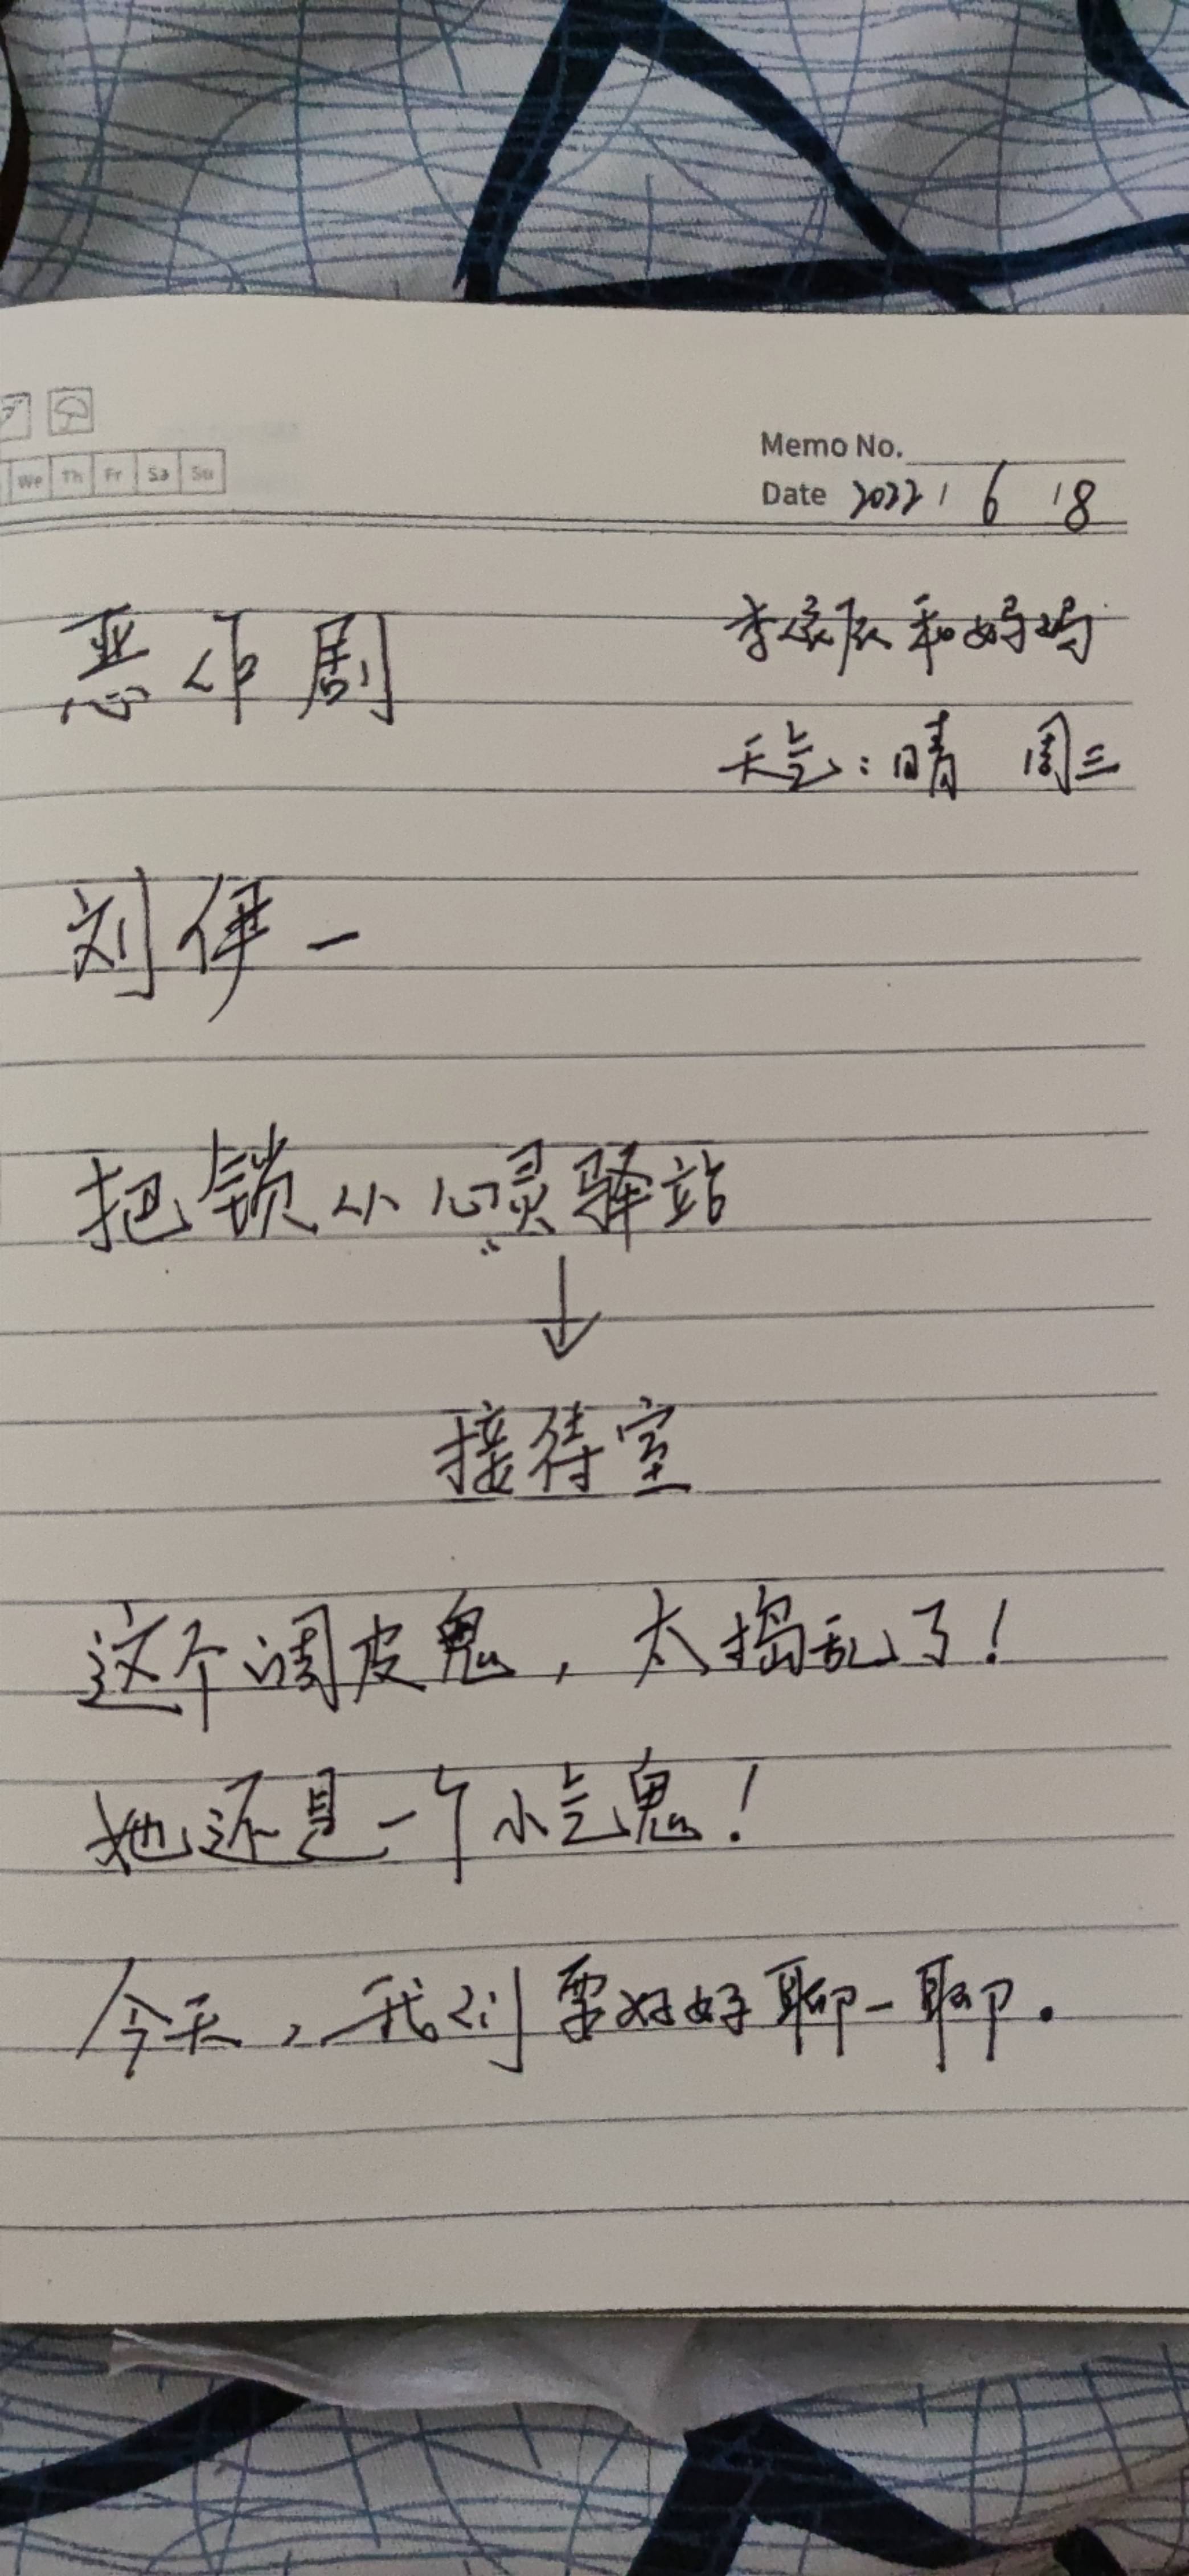 We Th Fr Sa Su
Memo No.
Date 2022 / 6 / 8
恶作剧
李家辰和妈妈
天气：晴 周三
刘伊一
把锁从心灵驿站
↓
接待室
这个调皮鬼，太捣乱了！
她还是一个小气鬼！
今天，我们要好好聊一聊.